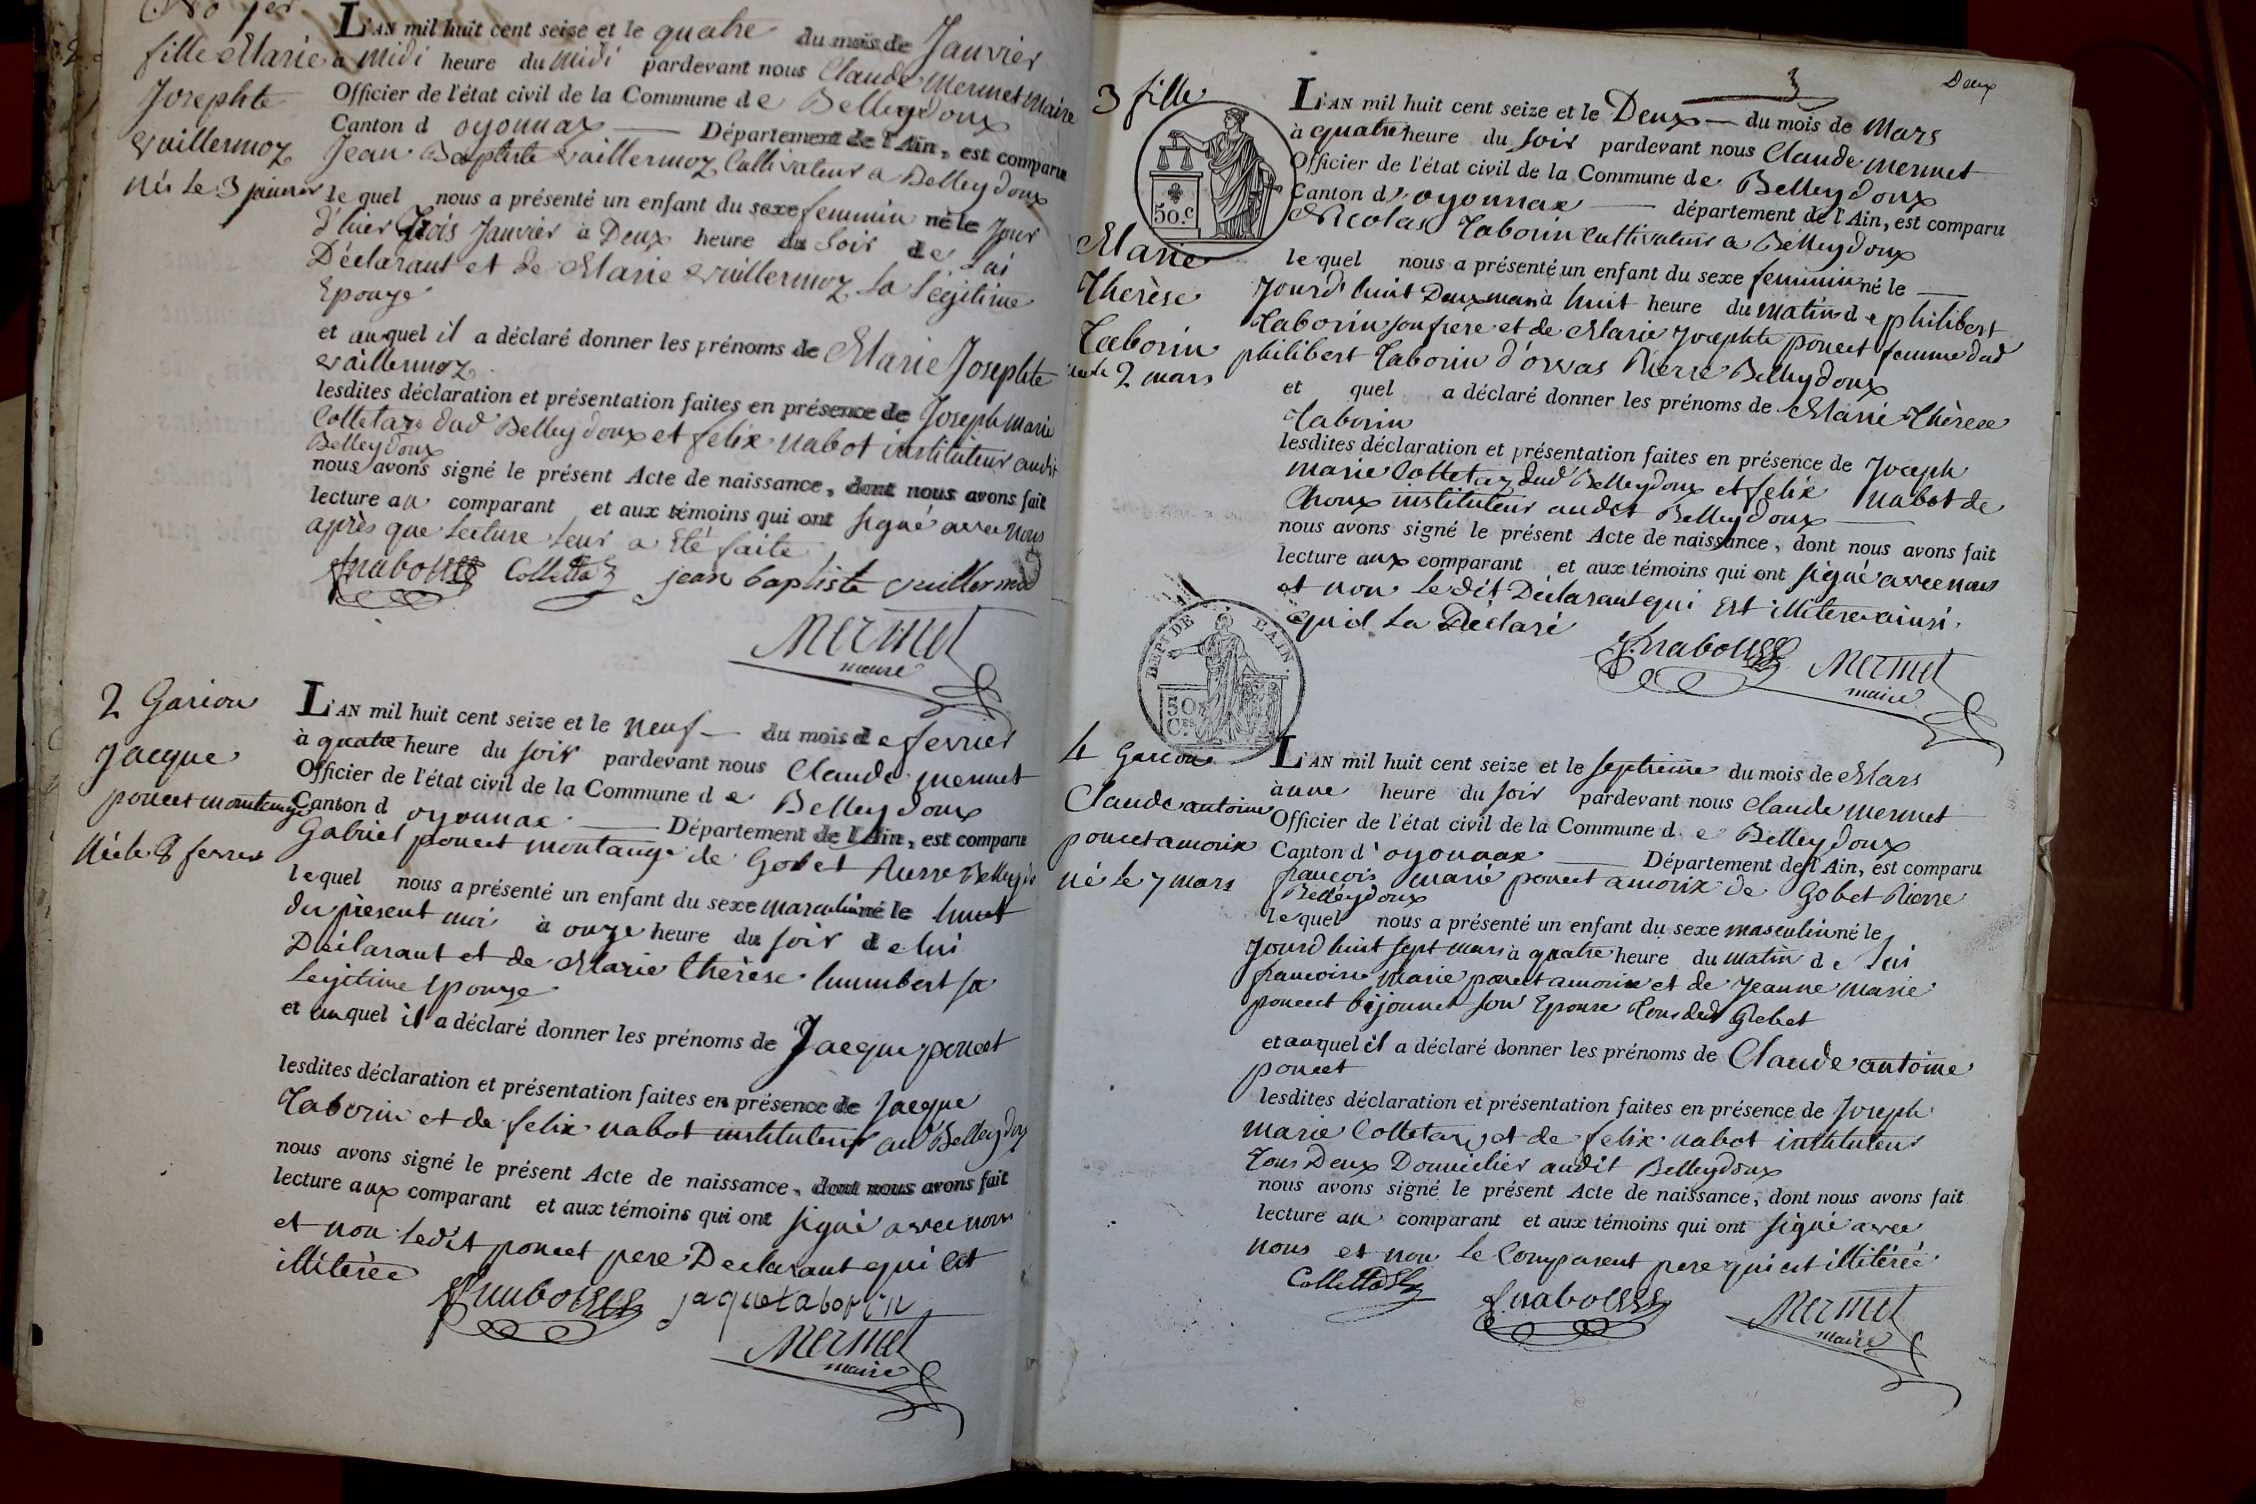 No 1er
fille Marie
Josephte
Vuillermoz
née le 3 janvier
L'AN mil huit cent seize et le quatre du mois de Janvier
à midi heure du midi pardevant nous Claude Mermet maire
Officier de l'état civil de la Commune de Belleydoux
Canton d oyonnax Département de l'Ain, est comparu
Jean Baptiste Vuillermoz Cultivateur a Belleydoux
le quel nous a présenté un enfant du sexe feminin né le Jour
d'hier Trois Janvier à Deux heure du Soir de Lui
Déclarant et de Marie Vuillermoz Sa Légitime
Epouze
et auquel il a déclaré donner les prénoms de Marie Josephte
Vuillermoz
lesdites déclaration et présentation faites en présence de Joseph Marie
Colletaz dud Belleydoux et felix nabot instituteur audit
Belleydoux
nous avons signé le présent Acte de naissance, dont nous avons fait
lecture au comparant et aux témoins qui ont signé avec nous
après que lecture leur a Eté faite
fnabot Colletaz jean baptiste vuillermoz
Mermet
maire
2 Garcon
Jacque
poncet montange
Né le 8 fevrier
L'AN mil huit cent seize et le neuf du mois de fevrier
à quatre heure du soir pardevant nous Claude mermet
Officier de l'état civil de la Commune de Belleydoux
Canton d oyonnax Département de l'Ain, est comparu
Gabriel poncet montange de Gobet
lequel nous a présenté un enfant du sexe masculin né le huit
du present moi à onze heure du soir de lui
Déclarant et de Marie thérèse humbert sa
Legitime Epouze
et auquel il a déclaré donner les prénoms de Jacque poncet
lesdites déclaration et présentation faites en présence de Jacque
Taborin et de felix nabot instituteur aud Belleydoux
nous avons signé le présent Acte de naissance, dont nous avons fait
lecture aux comparant et aux témoins qui ont signé avec nous
et non ledit poncet pere Declarant qui est
illiterée
fnabot jaque taborin
Mermet
maire
Deux
3
3 fille
50.c
Marie
Thérèse
Taborin
née le 2 mars
L'AN mil huit cent seize et le Deux du mois de Mars
à quatre heure du soir pardevant nous Claude mermet
Officier de l'état civil de la Commune de Belleydoux
Canton d'oyonnax département de l'Ain, est comparu
Nicolas Taborin Cultivateur a Belleydoux
le quel nous a présenté un enfant du sexe feminin né le
Jourd'huit Deux mars à huit heure du matin de philibert
Taborin son frere et de Marie Josephte poncet femme dud
philibert Taborin d'orvas Pierre Belleydoux
et quel a déclaré donner les prénoms de Marie Thérèse
Taborin
lesdites déclaration et présentation faites en présence de Joseph
marie Colletaz dud Belleydoux et felix nabot de
Choux instituteur audit Belleydoux
nous avons signé le présent Acte de naissance, dont nous avons fait
lecture aux comparant et aux témoins qui ont signé avec nous
et non Ledit Déclarant qui Est illitere ainsi
qu'il La Déclaré
fnabot Mermet
maire
DEPT DE L'AIN.
50
Ces
4 Garcon
Claude antoine
poncet amorix
né le 7 mars
L'AN mil huit cent seize et le septieme du mois de Mars
à une heure du soir pardevant nous Claude Mermet
Officier de l'état civil de la Commune de Belleydoux
Canton d'oyonnax Département de l'Ain, est comparu
françois marie poncet amorix de Gobet Pierre
Belleydoux
le quel nous a présenté un enfant du sexe masculin né le
Jourd huit sept mars à quatre heure du matin de lui
francois marie poncet amorix et de Jeanne marie
poncet bijonnet son Epouse
et auquel il a déclaré donner les prénoms de Claude antoine
poncet
lesdites déclaration et présentation faites en présence de Joseph
marie Colletaz et de felix nabot instituteur
Tous Deux Domicilier audit Belleydoux
nous avons signé le présent Acte de naissance, dont nous avons fait
lecture au comparant et aux témoins qui ont signé avec
nous et non le Comparent pere qui est illitérée
Colletaz fnabot Mermet
maire